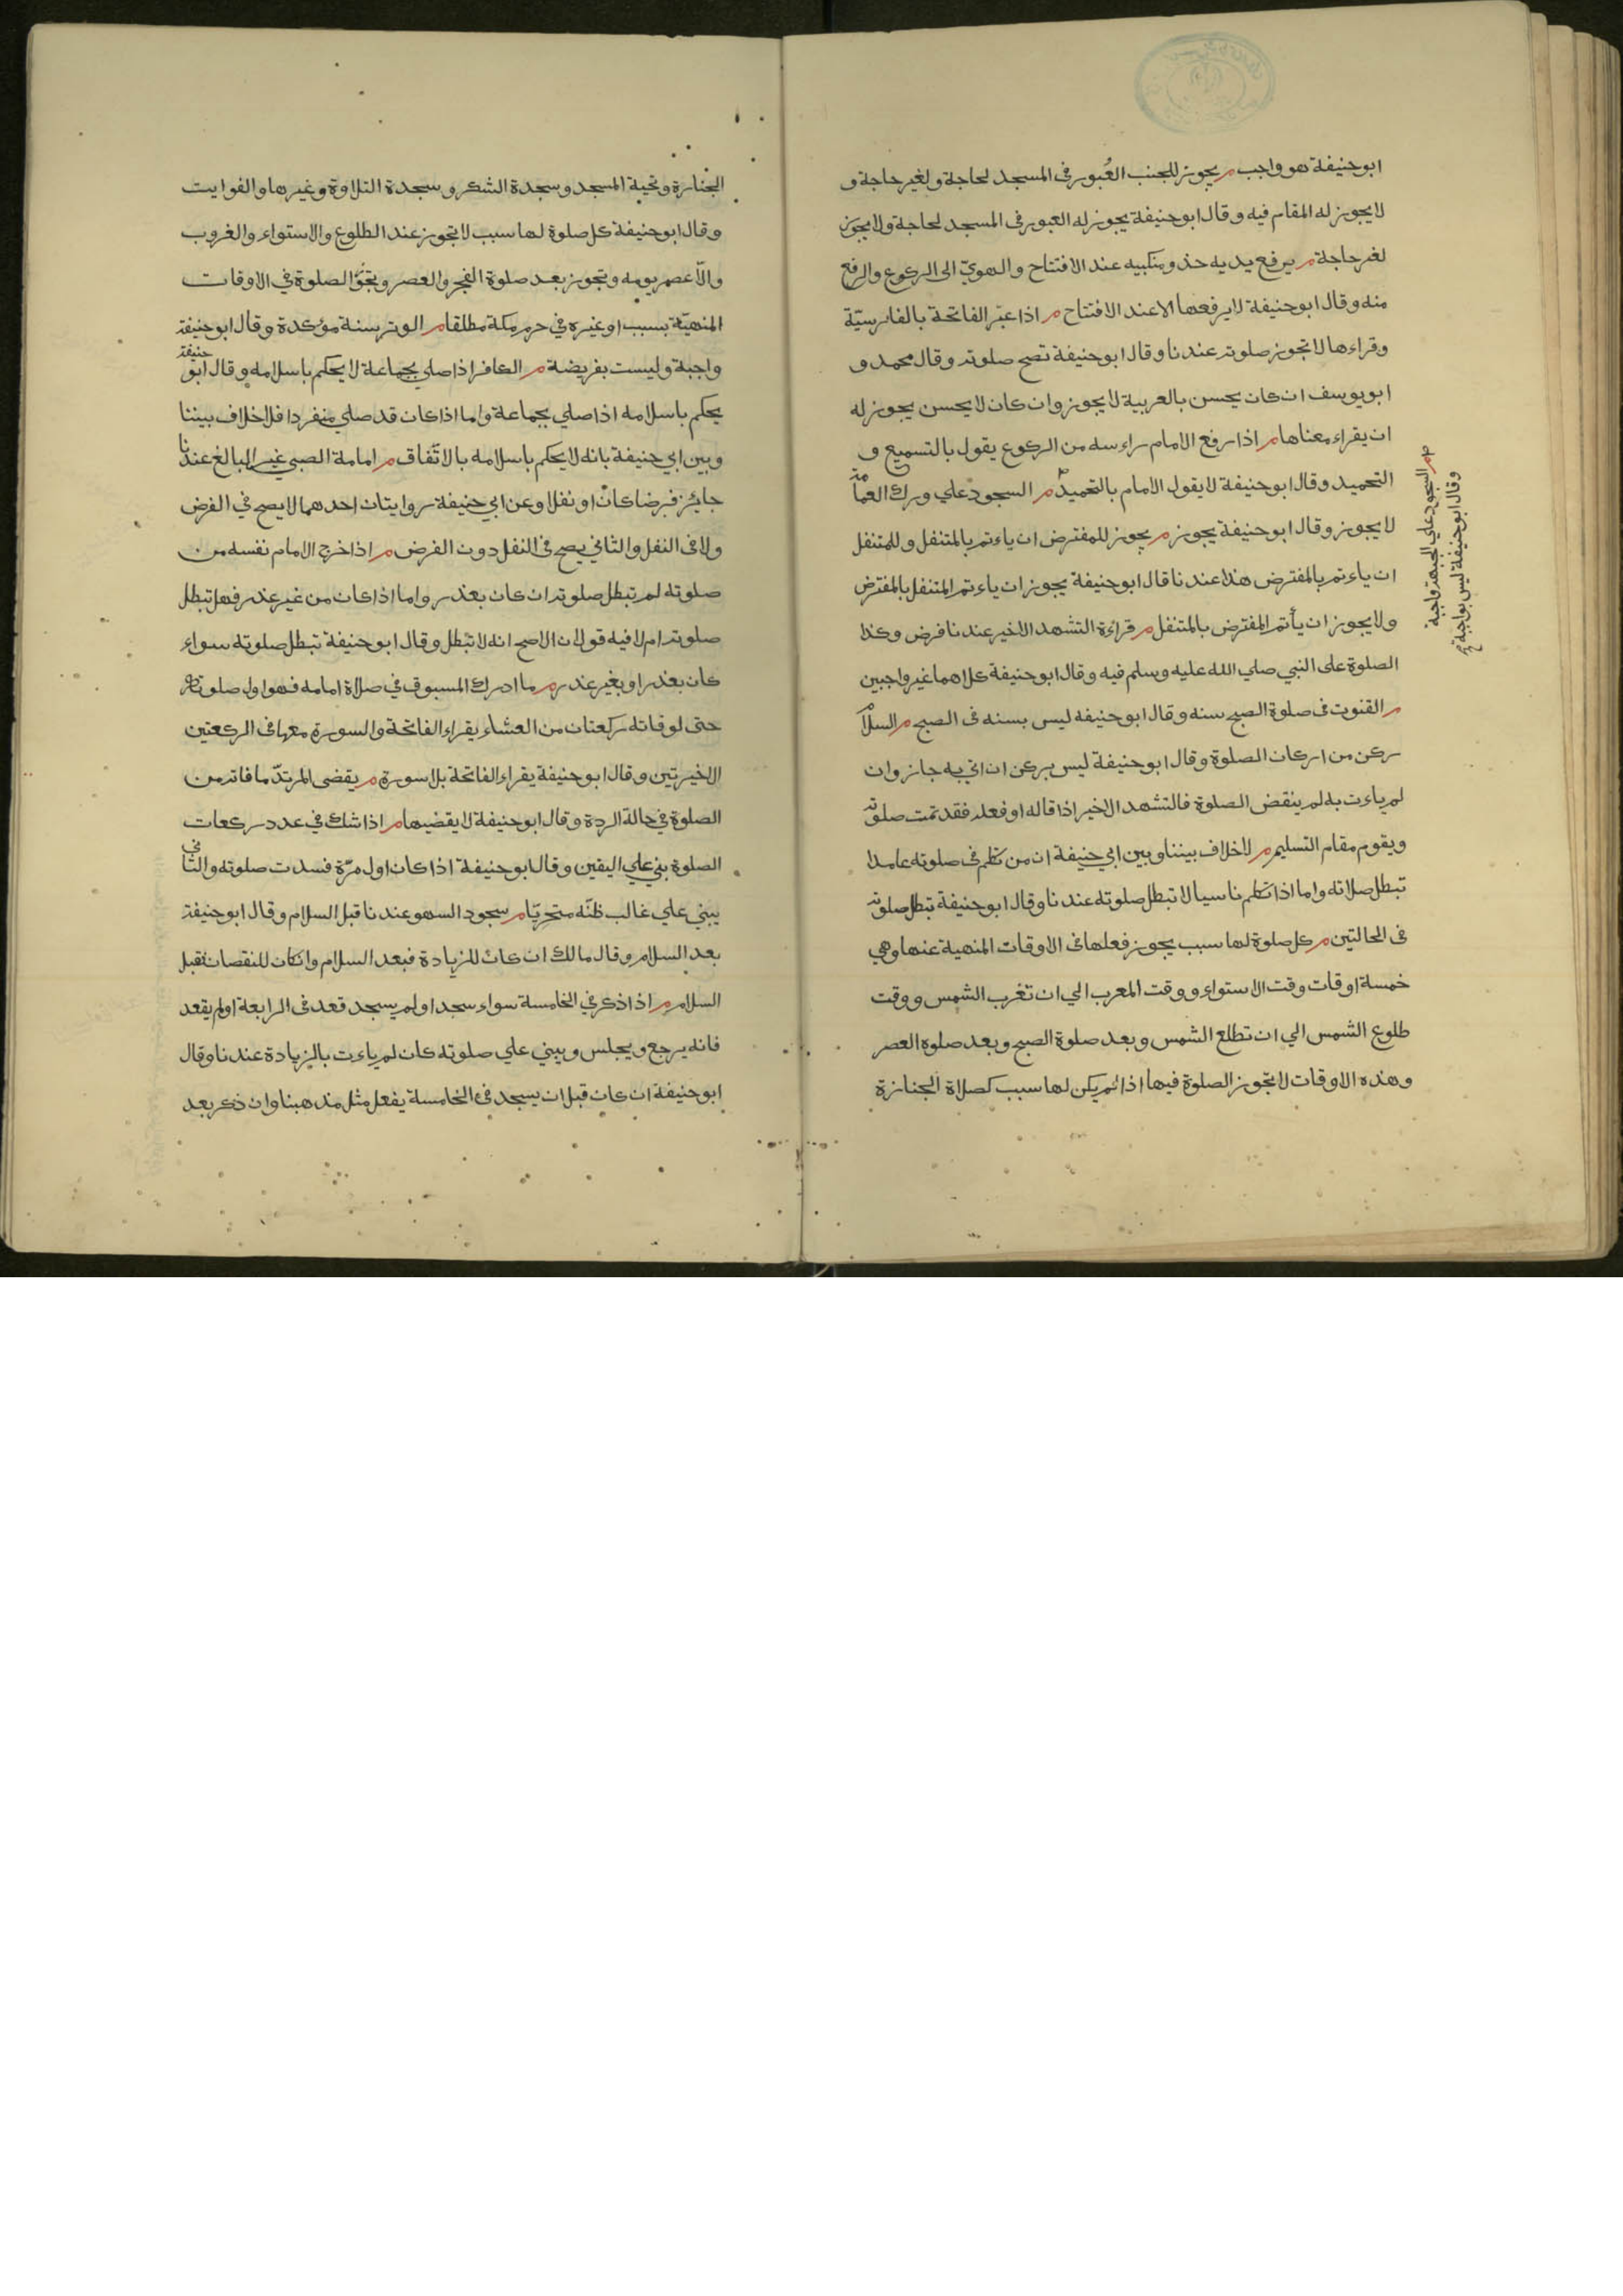 ابو حنيفة هو واجب م يجوز للجنب العُبور في المسجد لحاجة ولغير حاجة و
لا يجوز له المقام فيه وقال ابو حنيفة يجوز له العبور في المسجد لحاجة ولا يجوز
لغير حاجة م يرفع يديه حذو منكبيه عند الافتتاح والهويّ الى الركوع والرفع
منه وقال ابو حنيفة لا يرفعها الا عند الافتتاح م اذا عبّر الفاتحة بالفارسيّة
وقراءها لا تجوز صلوته عندنا وقال ابو حنيفة تصح صلوته وقال محمد و
ابو يوسف ان كان يحسن بالعربية لا يجوز وان كان لا يحسن يجوز له
ان يقراء معناها م اذا رفع الامام راءسه من الركوع يقول بالتسميع و
التحميد وقال ابو حنيفة لا يقول الامام بالتحميد م السجود علي ورك العمامة
لا يجوز وقال ابو حنيفة يجوز م يجوز للمفترض ان ياءتم بالمتنفل وللمتنفل
ان ياءتم بالمفترض هذا عندنا قال ابو حنيفة يجوز ان ياءتم المتنفل بالمفترض
ولا يجوز ان يأتم المفترض بالمتنفل م قراءة التشهد الاخير عندنا فرض وكذا
الصلوة على النبي صلي الله عليه وسلم فيه وقال ابو حنيفة كلاهما غير واجبين
م القنوت في صلوة الصبح سنه وقال ابو حنيفه ليس بسنه في الصبح م السلام
ركن من اركان الصلوة وقال ابو حنيفة ليس بركن ان اتي به جاز وان
لم ياءت به لم ينقض الصلوة فالتشهد الاخير اذا قاله او فعله فقد تمت صلوته
ويقوم مقام التسليم م لا خلاف بيننا وبين ابي حنيفة ان من تكلم في صلوته عامدا
تبطل صلاته واما اذا تكلم ناسيا لا تبطل صلوته عندنا وقال ابو حنيفة تبطل صلوته
في الحالتين م كل صلوة لها سبب يجوز فعلها في الاوقات المنهية عنها وهي
خمسة اوقات وقت الاستواء ووقت المعرب الي ان تغرب الشمس ووقت
طلوع الشمس الي ان تطلع الشمس وبعد صلوة الصبح وبعد صلوة العصر
وهذه الاوقات لا تجوز الصلوة فيها اذا لم يكن لها سبب كصلاة الجنازة
م السجود علي الجبهة واجبة
وقال ابو حنيفة ليس بواجبة
الجنازة وتحية المسجد وسجدة الشكر وسجدة التلاوة وغيرها والفوايت
وقال ابو حنيفة كل صلوة لها سبب لا تجوز عند الطلوع والاستواء والغروب
والّا عصر يومه وتجوز بعد صلوة الفجر والعصر وتجوّز الصلوة في الاوقات
المنهيّة بسبب او غيره في حرم مكة مطلقا م الوتر سنة مؤكدة وقال ابو حنيفة
واجبة وليست بفريضة م الكافر اذا صلي بجماعة لا يحكم باسلامه وقال ابو حنيفة
يحكم باسلامه اذا صلي بجماعة واما اذا كان قد صلي منفردا فلا خلاف بيننا
وبين ابي حنيفة بانه لا يحكم باسلامه بالاتّفاق م امامة الصبي غير البالغ عندنا
جايز فرضا كان او نفلا وعن ابي حنيفة روايتان احدهما لا يصح في الفرض
ولا في النفل والثاني يصح في النفل دون الفرض م اذا خرج الامام نفسه من
صلوته لم تبطل صلوته ان كان بعذر واما اذا كان من غير عذر فهل تبطل
صلوته ام لا فيه قولان الاصح انه لا تبطل وقال ابو حنيفة تبطل صلوته سواء
كان بعذر او بغير عذر م ما ادرك المسبوق في صلاة امامه فهو اول صلوته
حتى لو فاته ركعتان من العشاء يقراء الفاتحة والسورة معها في الركعتين
الاخيرتين وقال ابو حنيفة يقراء الفاتحة بلا سورة م يقضى المرتدّ ما فاته من
الصلوة في حالة الردة وقال ابو حنيفة لا يقضيها م اذا شك في عدد ركعات
الصلوة بني علي اليقين وقال ابو حنيفة اذا كان اول مرّة فسدت صلوته والثاني
يبني علي غالب ظنّه متحرّيا م سجود السهو عندنا قبل السلام وقال ابو حنيفة
بعد السلام وقال مالك ان كان للزيادة فبعد السلام وان كان للنقصان فقبل
السلام م اذا ذكر في الخامسة سواء سجد او لم يسجد قعد في الرابعة او لم يقعد
فانه يرجع ويجلس ويبني علي صلوته كان لم ياءت بالزيادة عندنا وقال
ابو حنيفة ان كان قبل ان يسجد في الخامسة يفعل مثل مذهبنا وان ذكر بعد